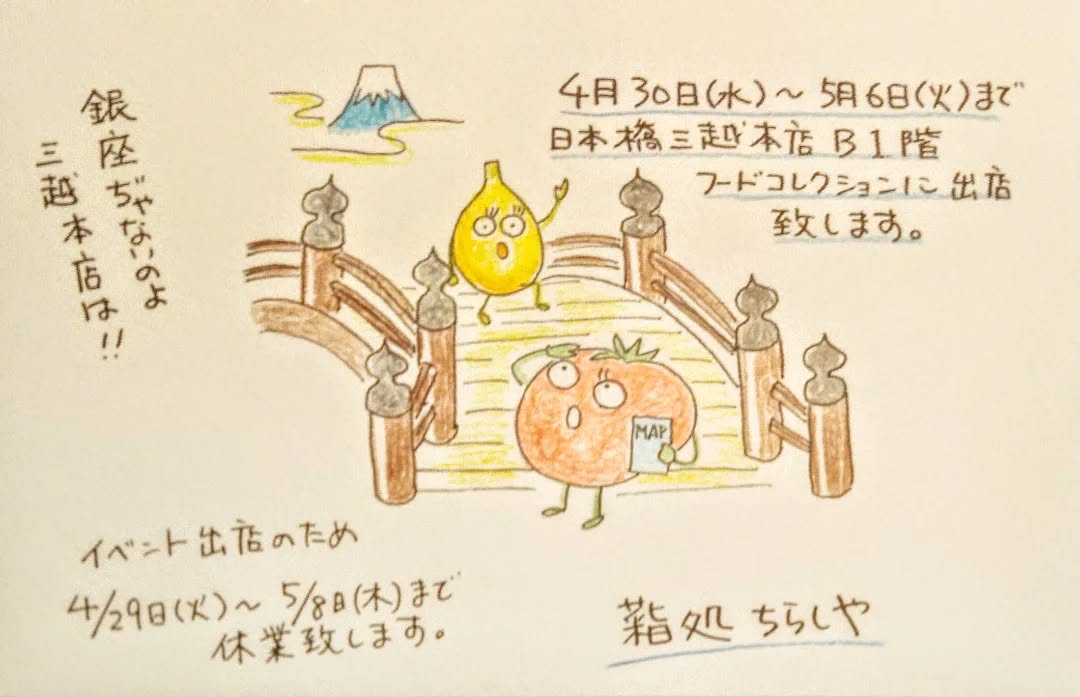 4月30日(水)～5月6日(火)まで
日本橋三越本店B1階
フードコレクションに出店
致します。
銀座ぢゃないのよ
三越本店は!!
MAP
イベント出店のため
4/29日(火)～5/8日(木)まで
休業致します。
処 ちらしや